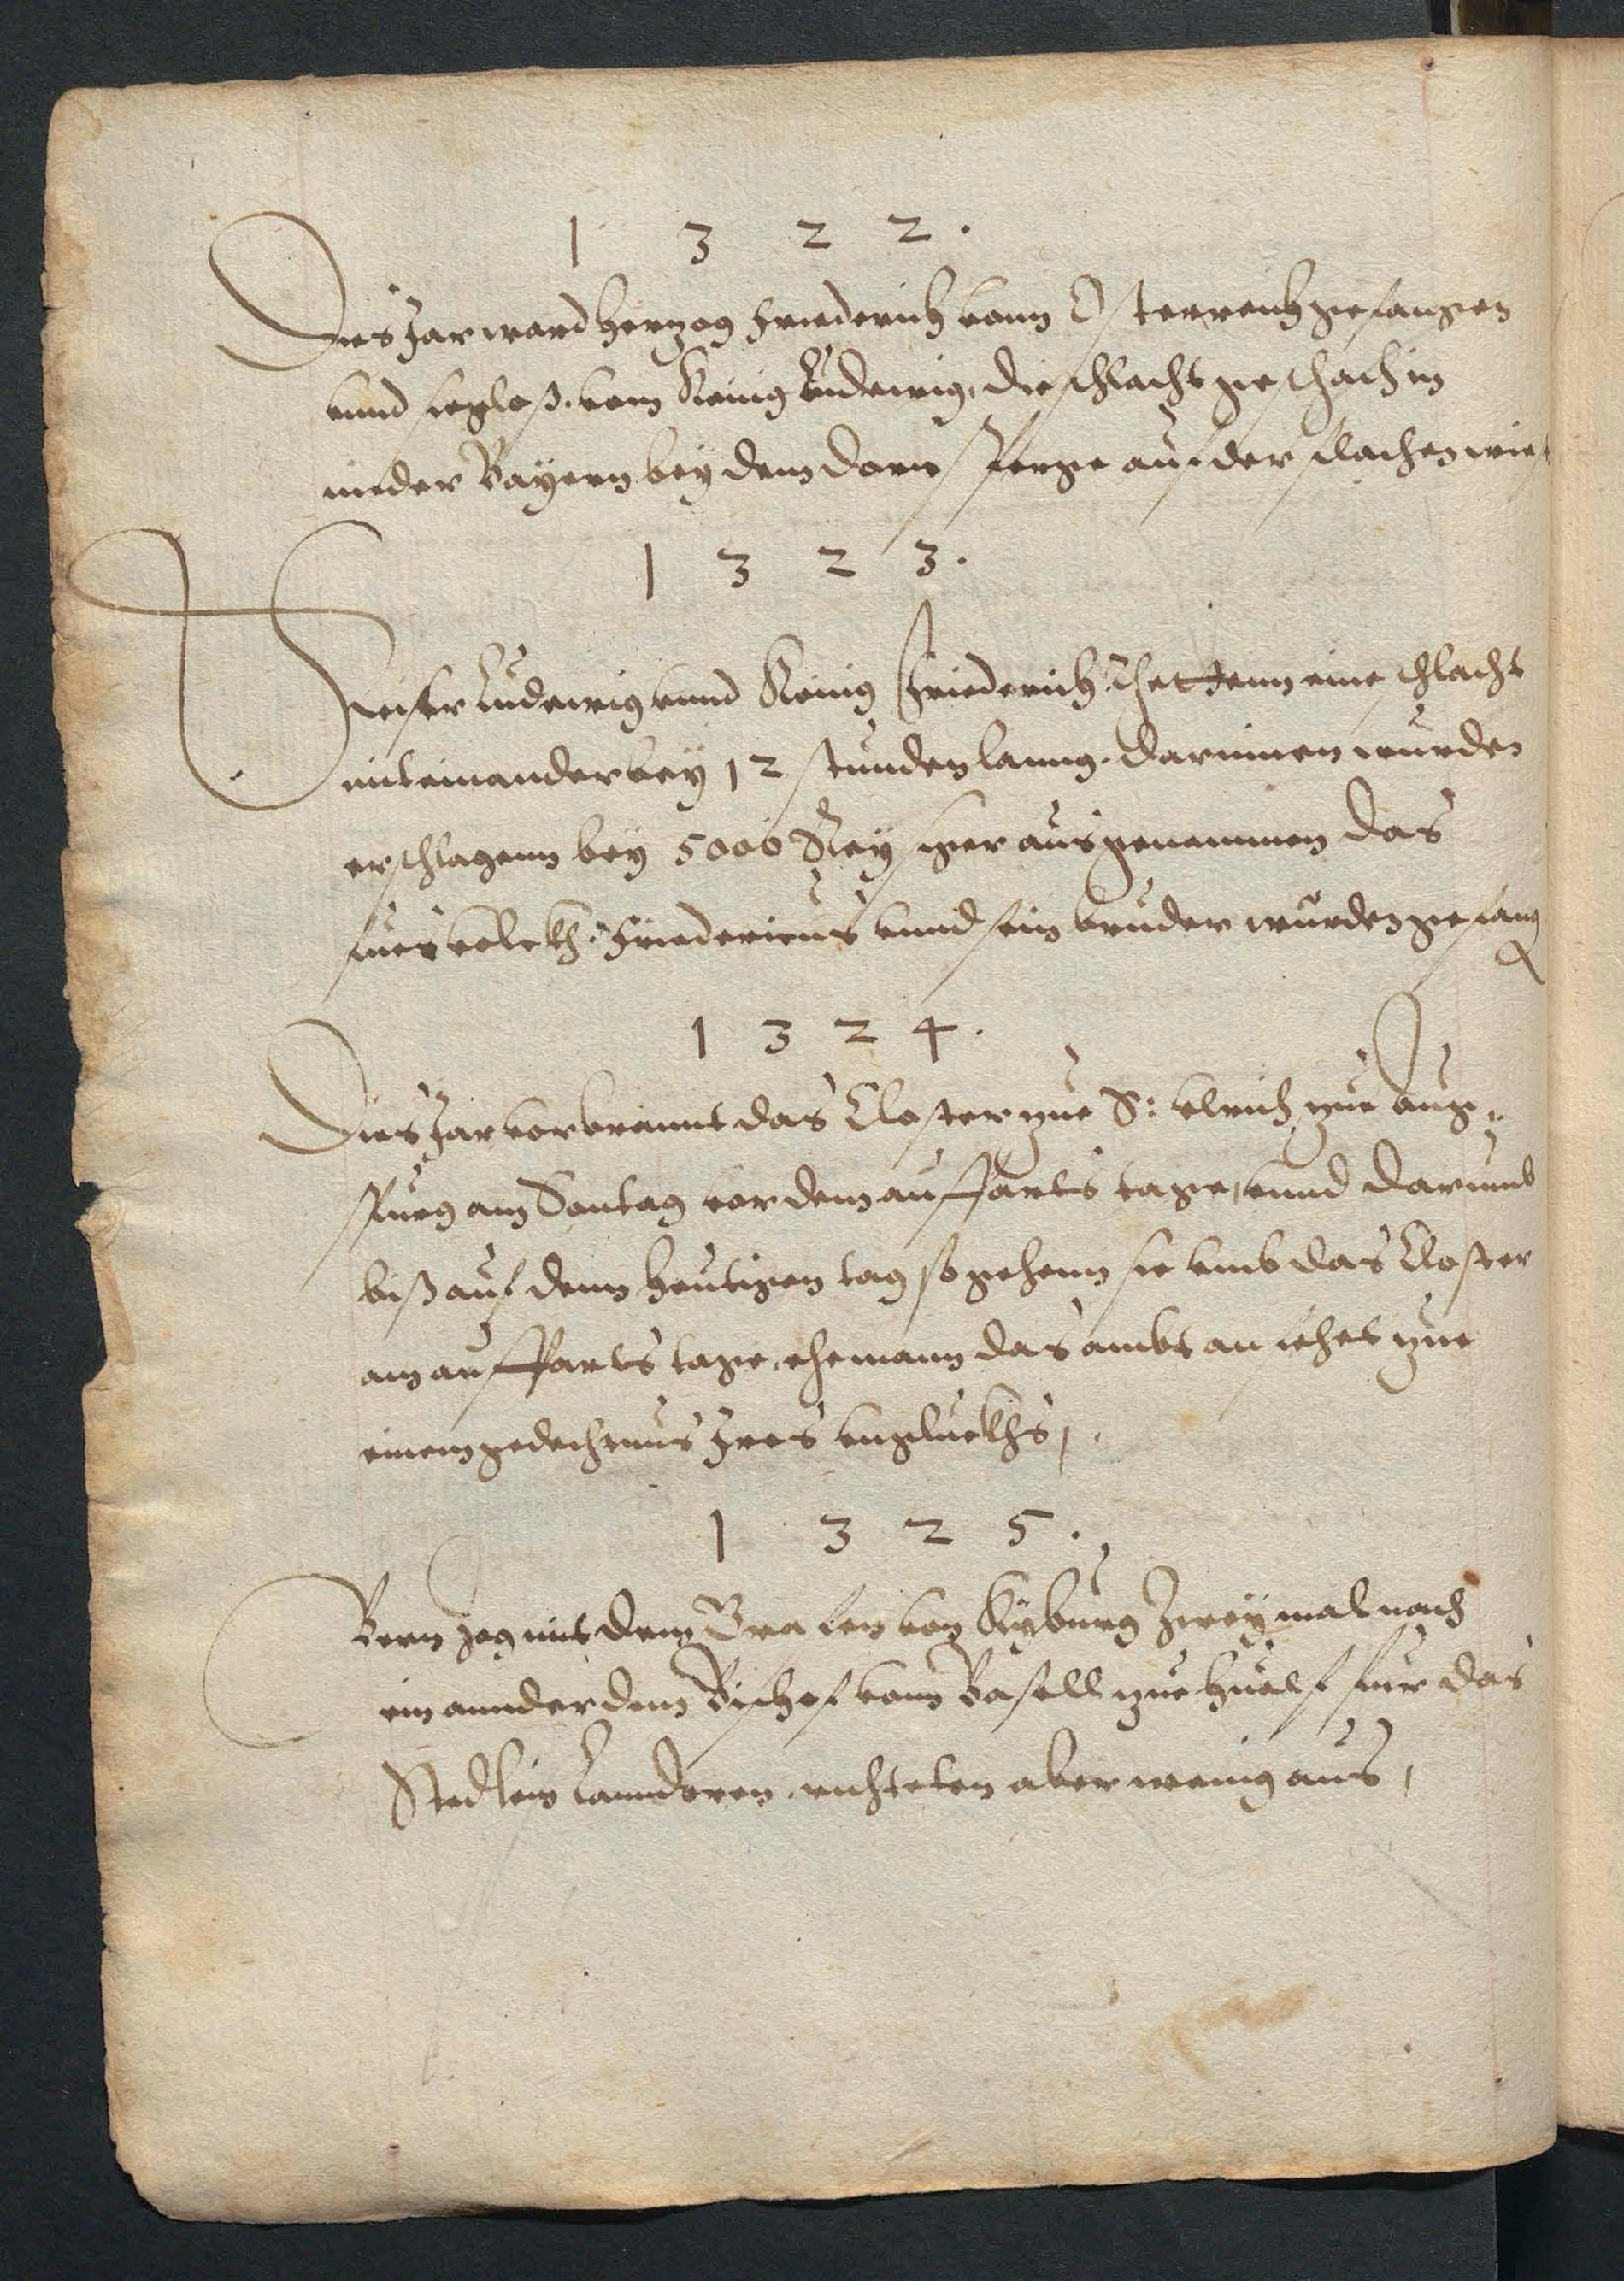 1 3 2 2.
Dies Jar ward Hertzog Friederich vonn Osterreich gefangen
vnnd sigloß. vom Kenig Ludewig, die schlacht geschach in
nieder Bayern bey dem dorn perge auf der flachen wies
1 3 2 3.
Keiser Ludewig vnnd Kenig Friederich thettenn eine schlacht
miteinander bey 12 stunden lanng. darinnen wurden
erschlagenn bey 5000 Reysiger ausgenommen das
fues volckh. Friedericus vnnd sein bruder wurden gefang
1 3 2 4.
Dies Jar vorbrannt das Closter zue S: vlrich zue Aug-
spurg am Sontag vor dem auffarts tage, vnnd darumb
biß auf denn heutigen tag so gehenn sie vmb das Closter
am auffarts tage, ehe mann das ambt an sehet zue
einem gedechtnus Jres vngluckhs,.
1 3 2 5.
Bern zog mit dem Grafen von Kyburg zweymal nach
ein annder dem Bischof vonn Basell zue huelf fur das
Stedlein Lannderen. richteten aber wenig aus,